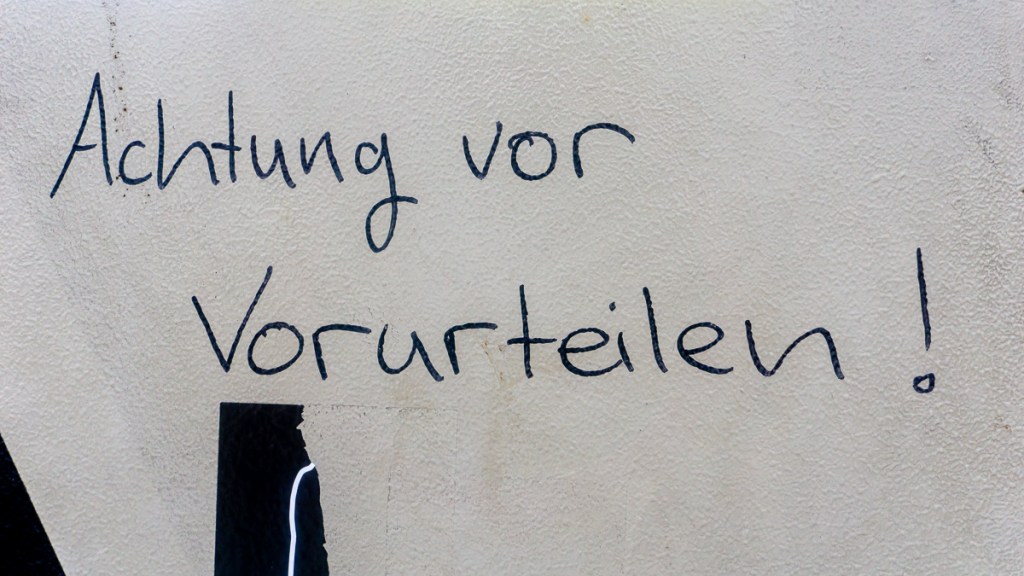 Achtung vor
Vorurteilen!